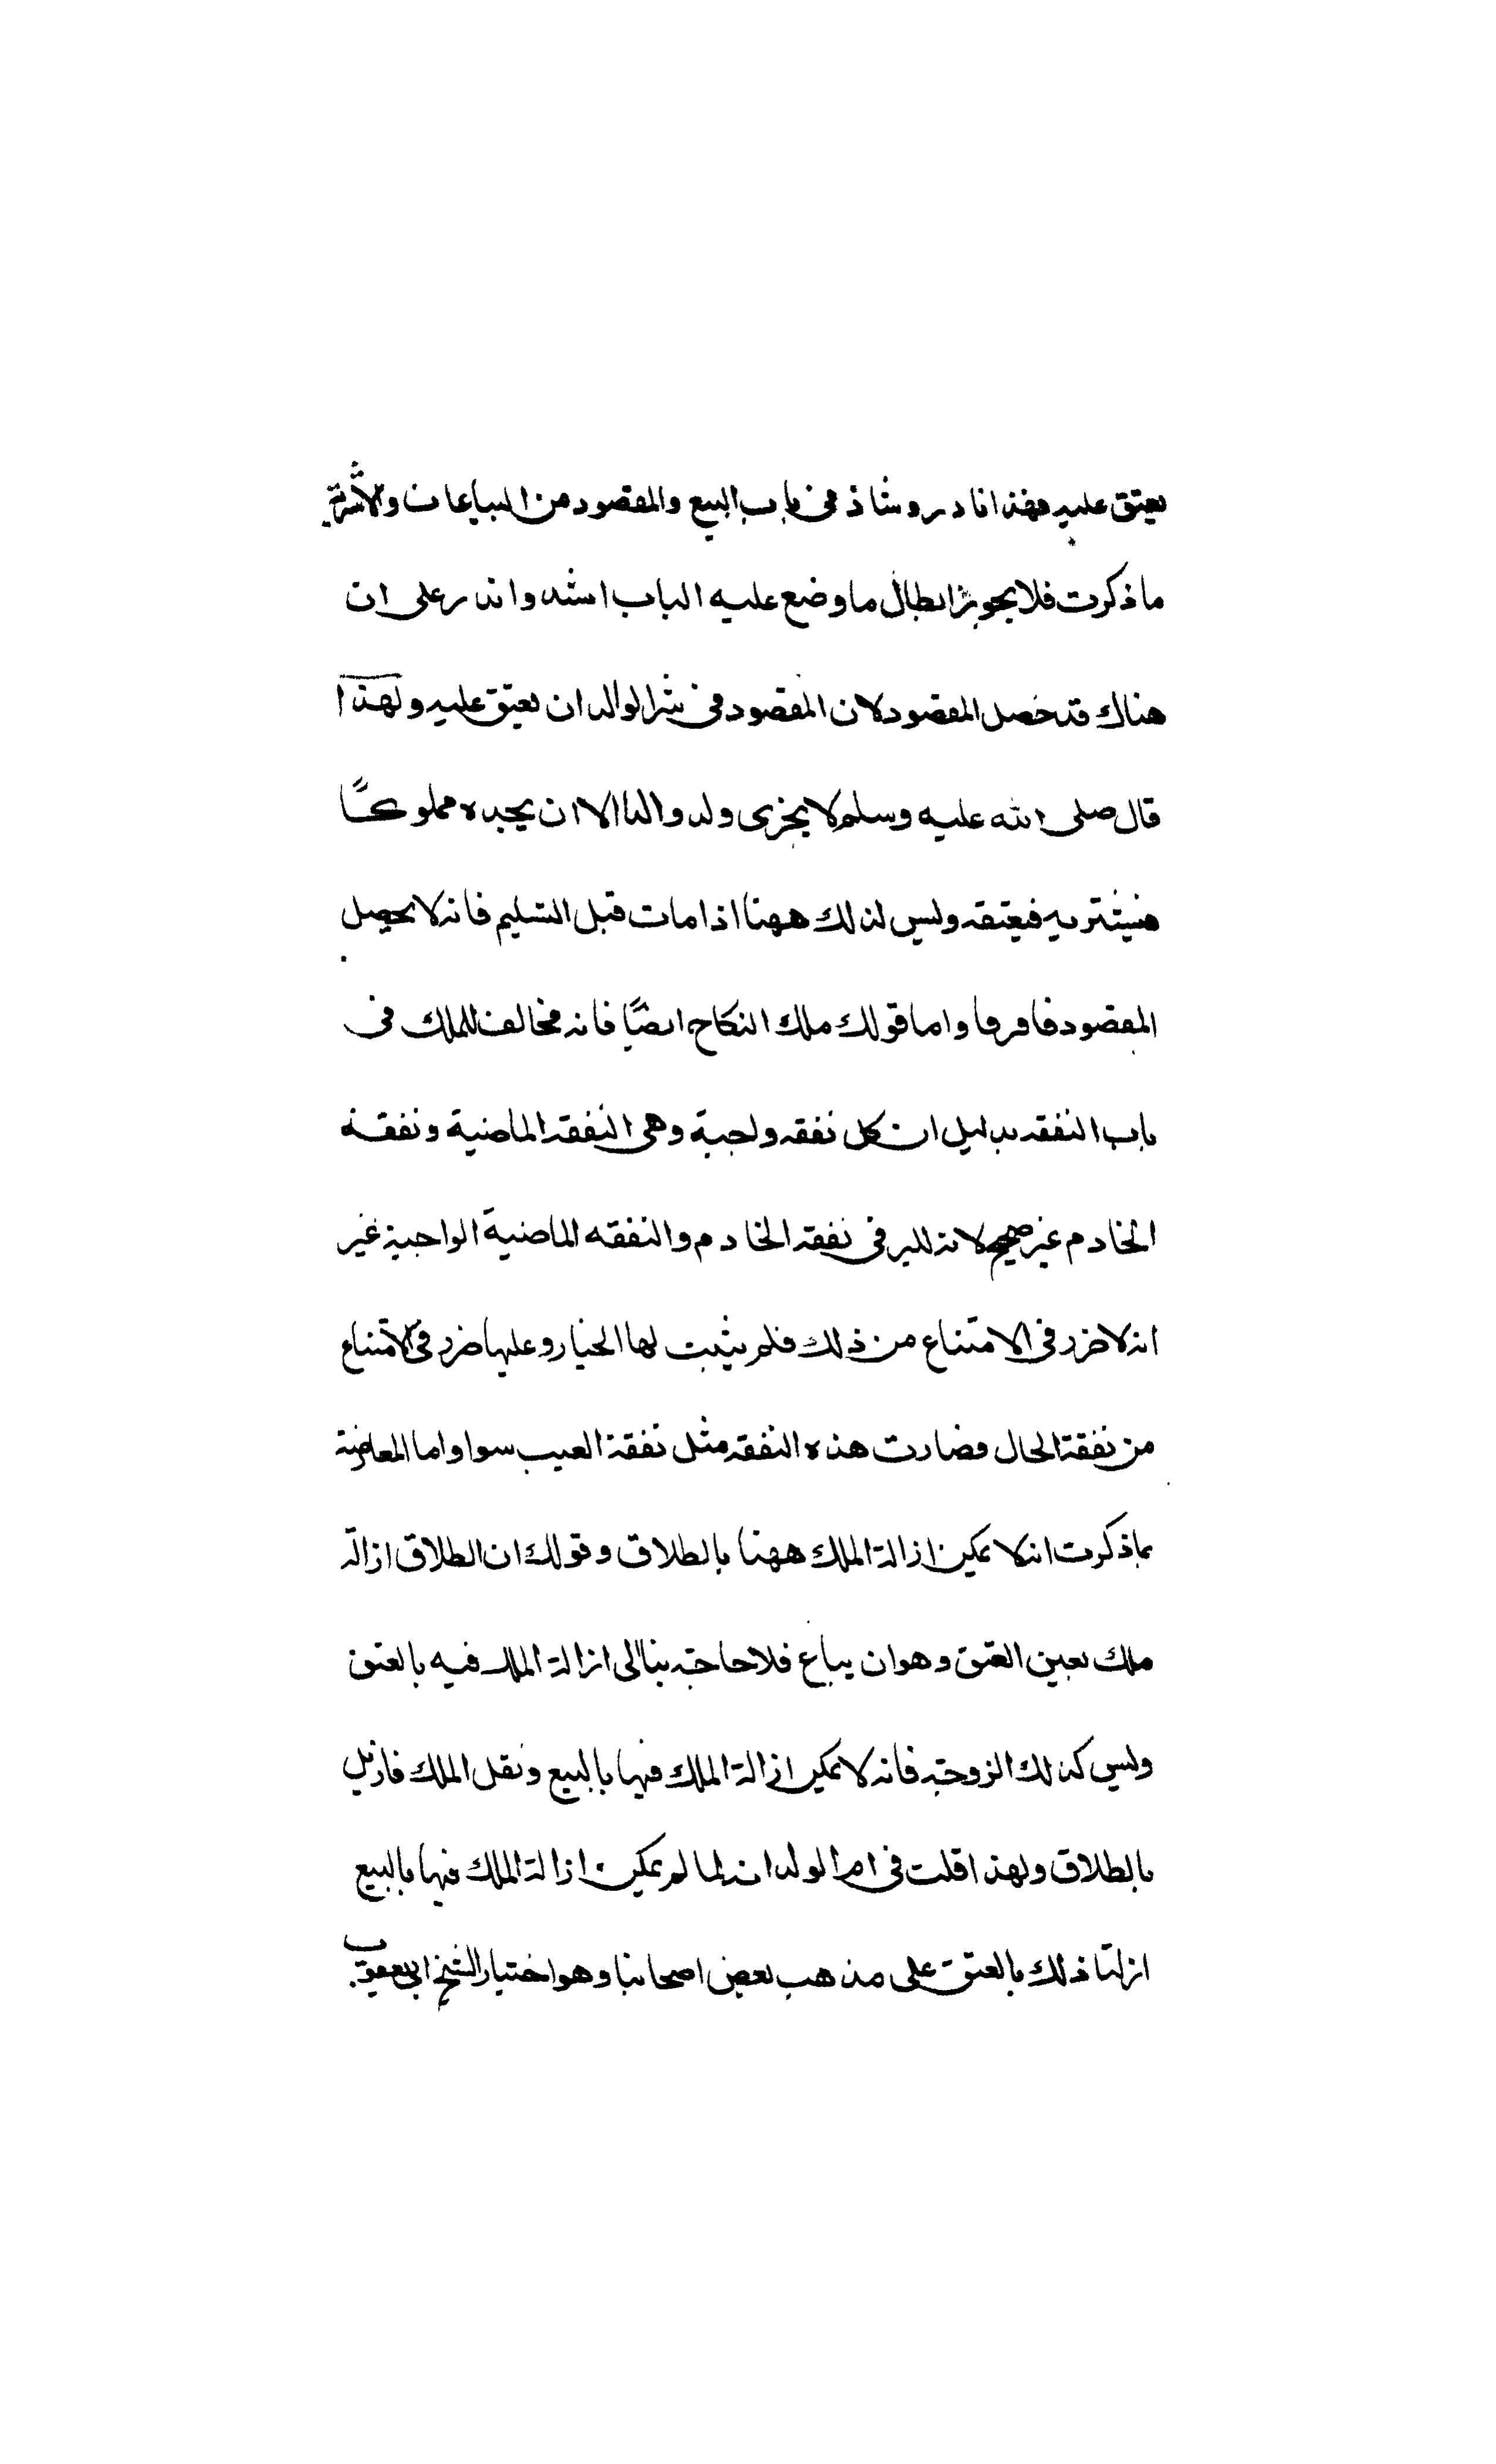 يعتق عليه فهذا نادر وشاذ في باب البيع والمقصود من البياعات والاشرية
ما ذكرت فلا يجوز ابطال ما وضع عليه الباب اشد واندر على ان
هناك قد حصل المقصود لان المقصود في شرا الوالد ان يعتق عليه ولهذا
قال صلى الله عليه وسلم لا يجزى ولد والدا الا ان يجده مملوكًا
فيشتريه فيعتقه وليس كذلك ههنا اذا مات قبل التسليم فانه لا يحصل
المقصود فافرقا واما قولك ملك النكاح ايضًا فانه مخالف للملك في
باب النفقه بدليل ان كل نفقه واجبة وهى النفقه الماضية ونفقة
الخادم غير صحيح لانه ليس في نفقه الخادم والنفقه الماضية الواجبة غير
انه لا ضرر في الامتناع من ذلك فلم يثبت لها الخيار وعليها ضرر في الامتناع
من نفقة الحال فصارت هذه النفقه مثل نفقة العبيد سوا واما المعارضة
بما ذكرت انه لا يمكن ازالة الملك ههنا بالطلاق وقولك ان الطلاق ازالة
ملك بعين العتق وهو ان يباع فلا حاجة بنا الى ازالة الملك فيه بالعتق
وليس كذلك الزوجة فانه لا يمكن ازالة الملك فيها بالبيع ونقل الملك فازيل
بالطلاق ولهذا قلت في ام الولد انه لما لم يمكن ازالة الملك فيها بالبيع
ازلنا ذلك بالعتق على مذهب بعض اصحابنا وهو اختيار الشيخ ابي يعقوب